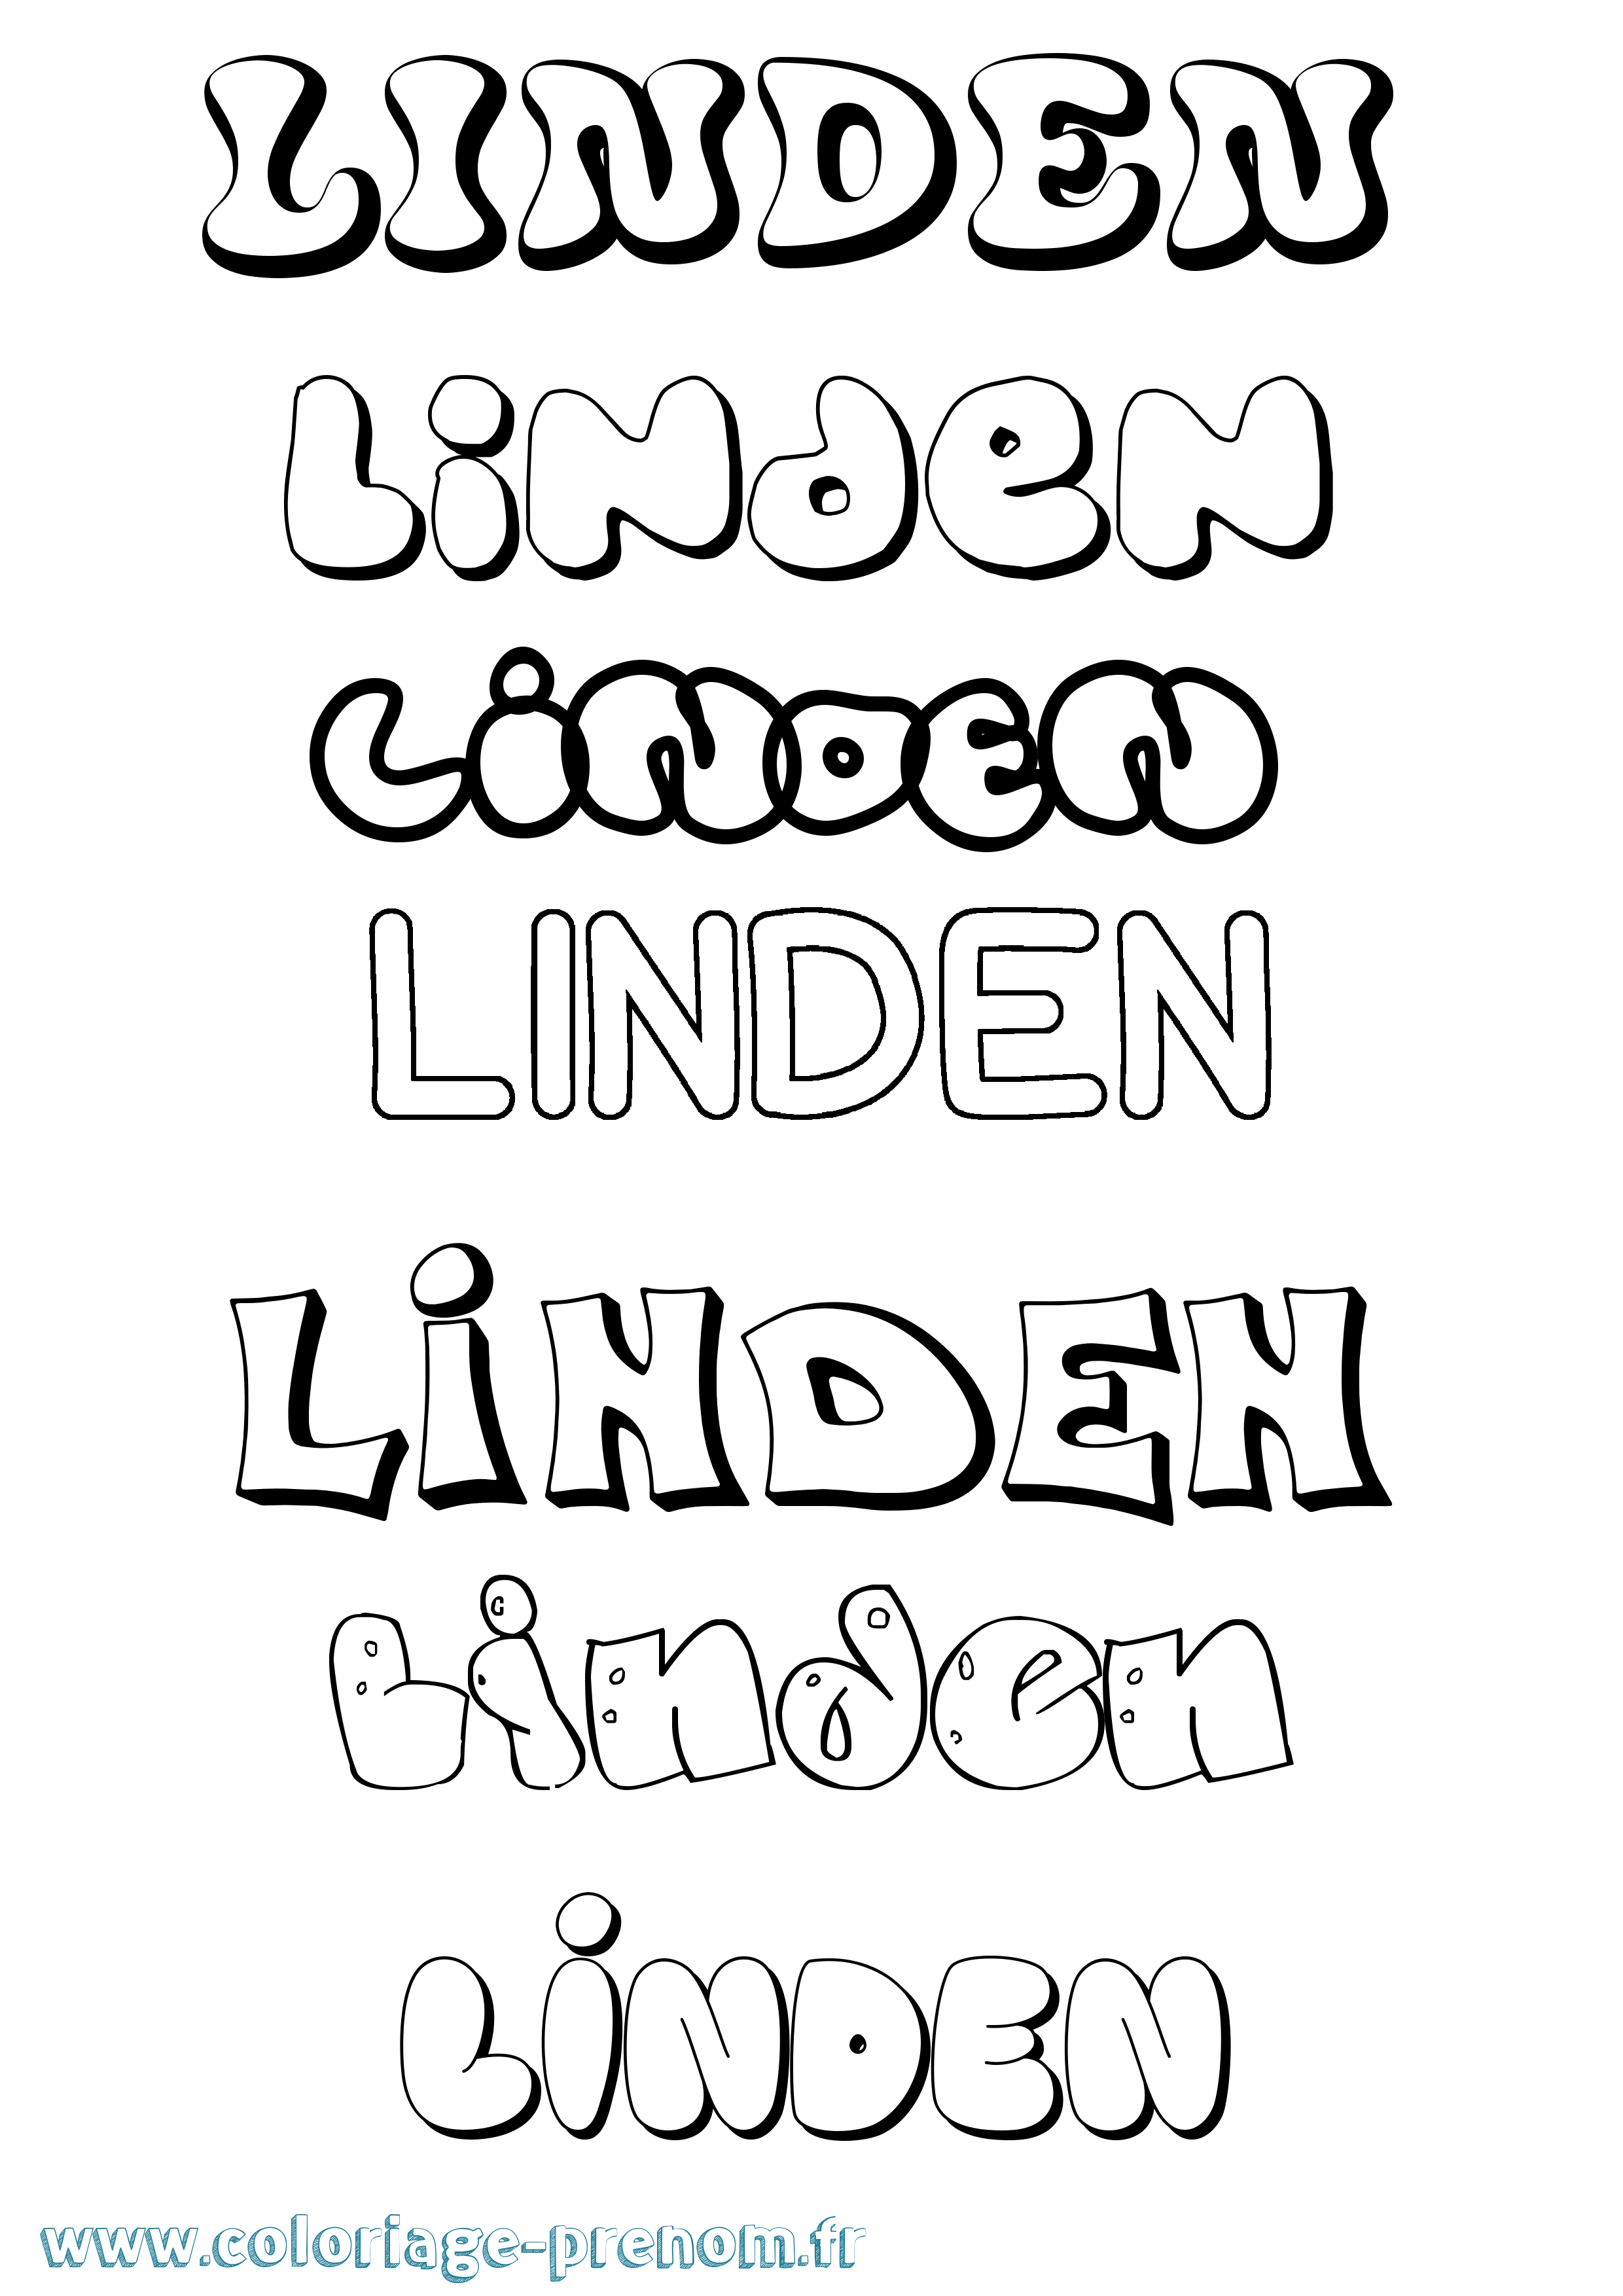 LINDEN
LiNdeN
LiNDEN
LINDEN
LiNDEN
Linden
LiNDEN
www.coloriage-prenom.fr